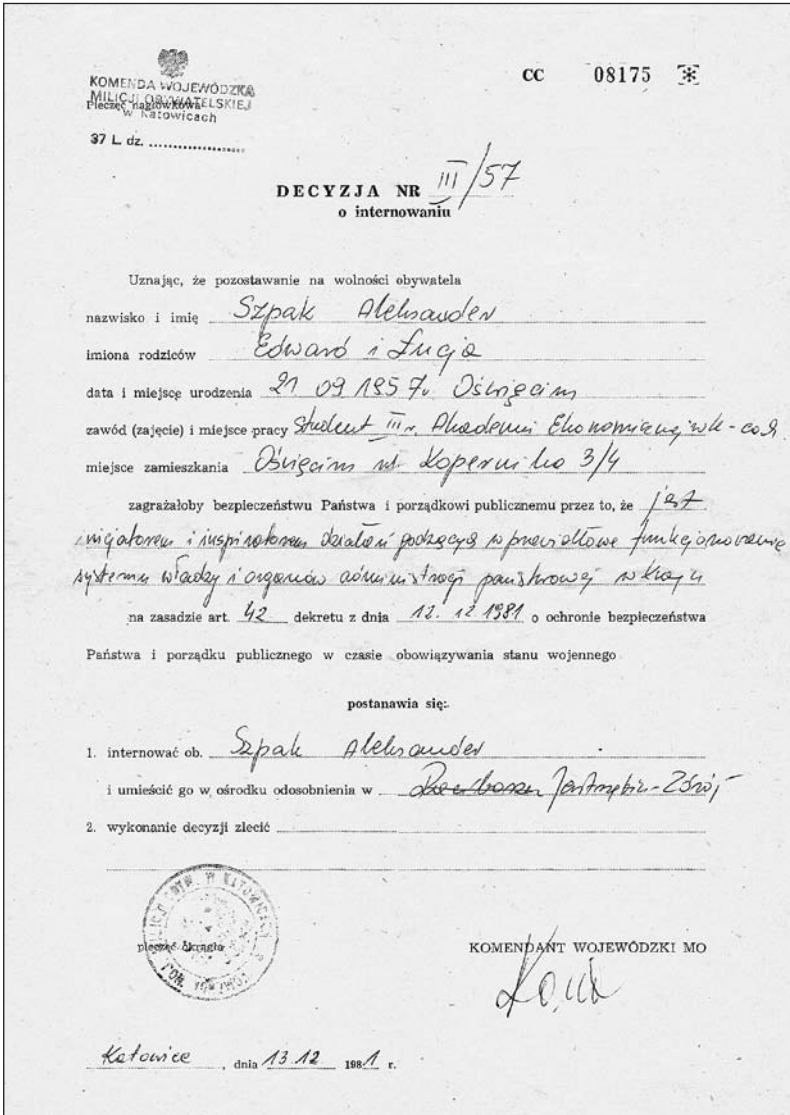 KOMENDA WOJEWÓDZKA
MILICJI OBYWATELSKIEJ
Pieczęć nagłówkowa
w Katowicach
37 L. dz. ....................
CC 08175
DECYZJA NR III/57
o internowaniu
Uznając, że pozostawanie na wolności obywatela
nazwisko i imię Szpak Aleksander
imiona rodziców Edward i Łucja
data i miejsce urodzenia 21 09 1957r. Oświęcim
zawód (zajęcie) i miejsce pracy Student III r. Akademii Ekonomicznej w K-cach
miejsce zamieszkania Oświęcim ul. Kopernika 3/4
zagrażałoby bezpieczeństwu Państwa i porządkowi publicznemu przez to, że jest
inicjatorem i inspiratorem działań godzących w prawidłowe funkcjonowanie
systemu władzy i organów administracji państwowej w kraju
na zasadzie art. 42 dekretu z dnia 12. 12 1981 o ochronie bezpieczeństwa
Państwa i porządku publicznego w czasie obowiązywania stanu wojennego
postanawia się:
1. internować ob. Szpak Aleksander
i umieścić go w ośrodku odosobnienia w Jastrzębiu-Zdrój
2. wykonanie decyzji zlecić
pieczęć okrągła
KOMENDANT WOJEWÓDZKI MO
Katowice, dnia 13.12 1981 r.